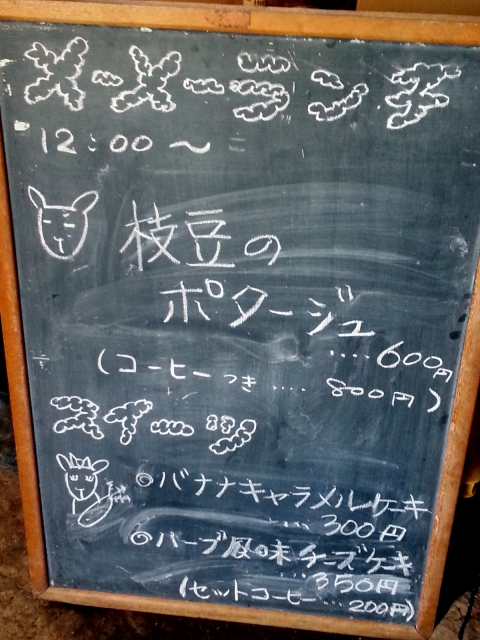 メーメーランチ
12:00〜
枝豆の
ポタージュ
....600円
(コーヒーつき....800円)
スイーツ
◎バナナキャラメルケーキ
....300円
◎ハーブ風味チーズケーキ
...350円
(セットコーヒー...200円)